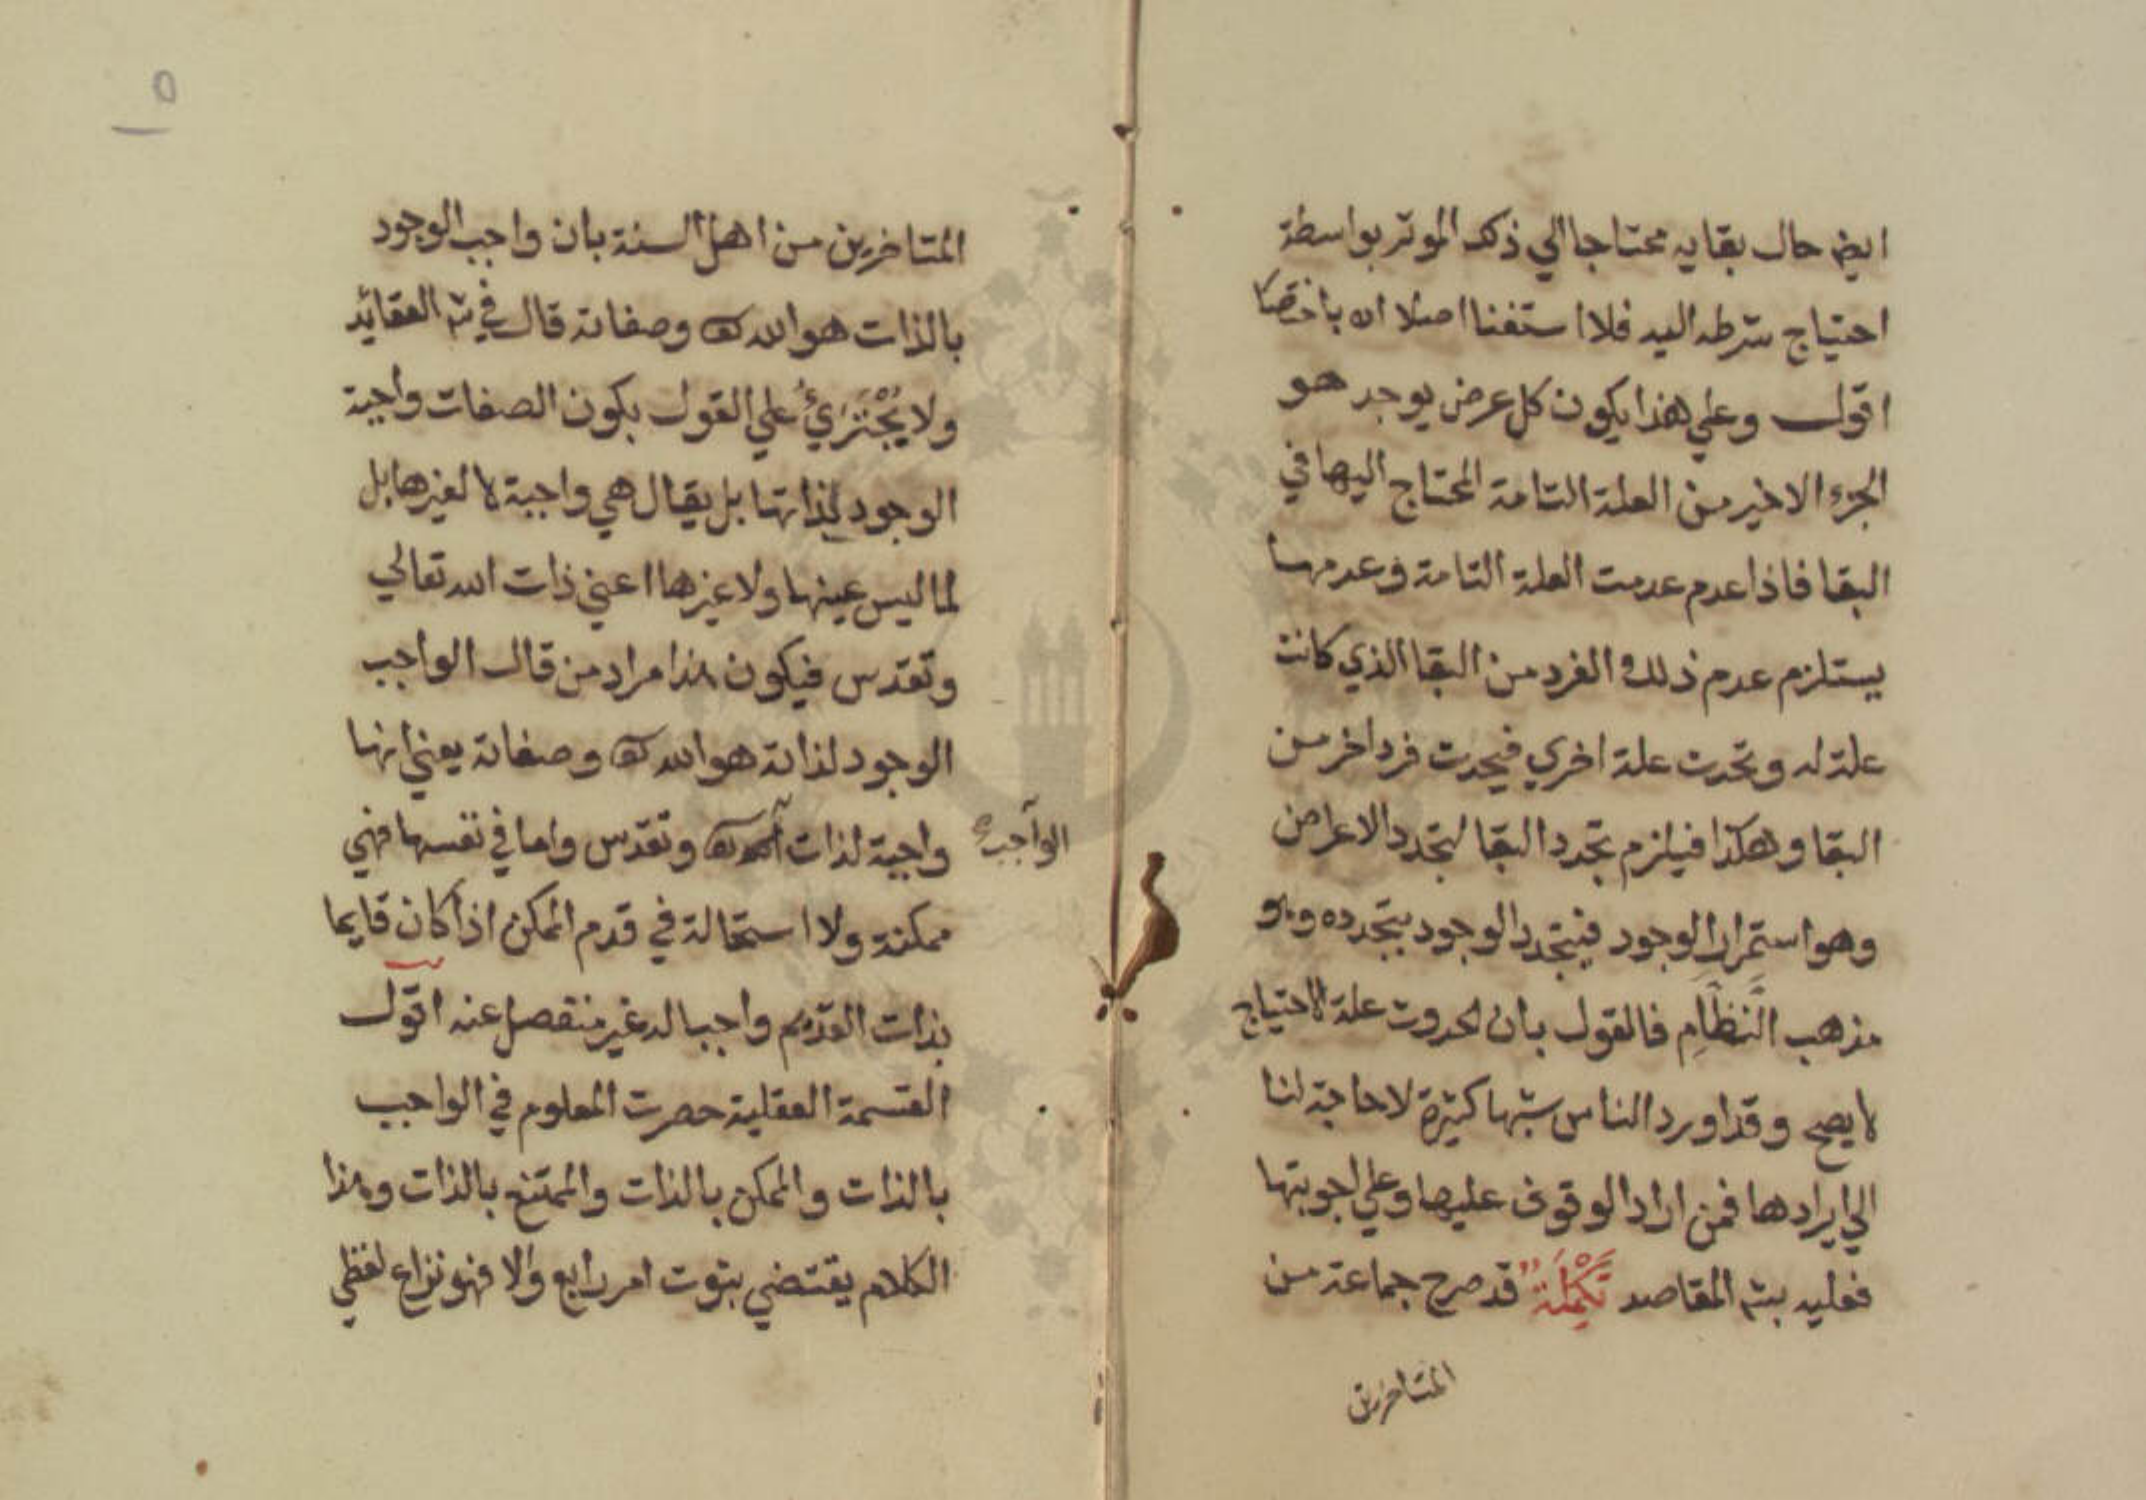 ايض حال بقايه محتاجا الي ذلك الموثر بواسطة
احتياج شرطه اليه فلا استغنا اصلا اه باختصا
اقول وعلي هذا يكون كل عرض يوجد هو
الجزء الاخير من العلة التامة المحتاج اليها في
البقا فاذا عدم عدمت العلة التامة وعدمها
يستلزم عدم ذلك الفرد من البقا الذي كانت
علة له وتحدث علة اخري فيحدث فرد اخر من
البقا وهكذا فيلزم تجدد البقا لتجدد الاعراض
وهو استمرار الوجود فيتجدد الوجود بتجدده وهو
مذهب النَّظَّامِ فالقول بان الحدوث علة الاحتياج
لا يصح وقد اورد الناس شبها كثيرة لا حاجة لنا
الي ايرادها فمن اراد الوقوف عليها وعلي اجوبتها
فعليه بشم المقاصد تَكْمِلَةٌ قد صرح جماعة من
المتاخرين
٥
المتاخرين من اهل السنة بان واجب الوجود
بالذات هو الله تعا وصفاته قال في شم العقائد
ولا يُجْتَرَيءُ علي القول بكون الصفات واجبة
الوجود لذاتها بل يقال هي واجبة لا لغيرها بل
لما ليس عينها ولا غيرها اعني ذات الله تعالي
وتقدس فيكون هذا مراد من قال الواجب
الوجود لذاته هو الله تعا وصفاته يعني انها
واجبة لذات الله تعا وتقدس واما في نفسها فهي
الواجب
ممكنة ولا استحالة في قدم الممكن اذا كان قايما
بذات القديم واجبا له غير منفصل عنه اقول
القسمة العقلية حصرت المعلوم في الواجب
بالذات والممكن بالذات والممتنع بالذات وهذا
الكلام يقتضي بثوت امر رابع والا فهو نزاع لفظي